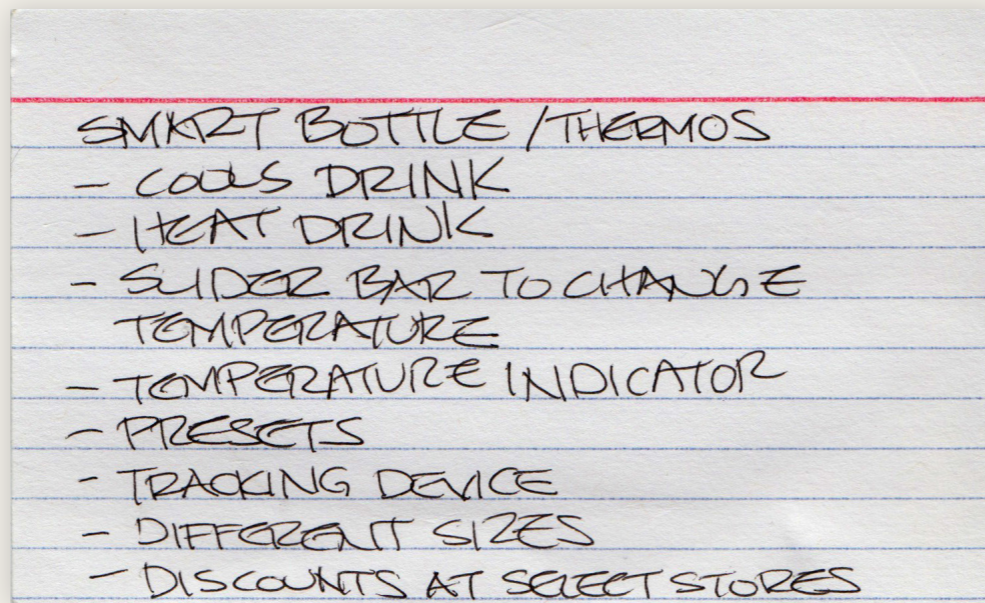 SMART BOTTLE / THERMOS
- COOLS DRINK
- HEAT DRINK
- SLIDER BAR TO CHANGE
TEMPERATURE
- TEMPERATURE INDICATOR
- PRESETS
- TRACKING DEVICE
- DIFFERENT SIZES
- DISCOUNTS AT SELECT STORES